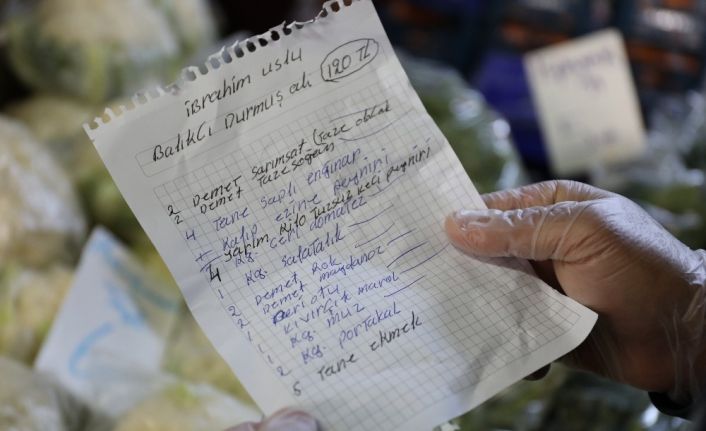 ibrahim uslu
Balıkçı Durmuş alı 120 TL
2 Demet sarımsat (Taze olacak
2 Demet Tazesoğan
4 Tane saplı enginar
1 Kalıp ezine peyniri
yarım kilo Tuzsuz keçi peyniri
4 Kg. ceri domates
1 Kg. salatalık
2 Demet Rok
2 Demet maydanoz
1 Dereotu
1 kıvırçık marol
1 Kg. muz
2 Kg. portakal
5 Tane ekmek